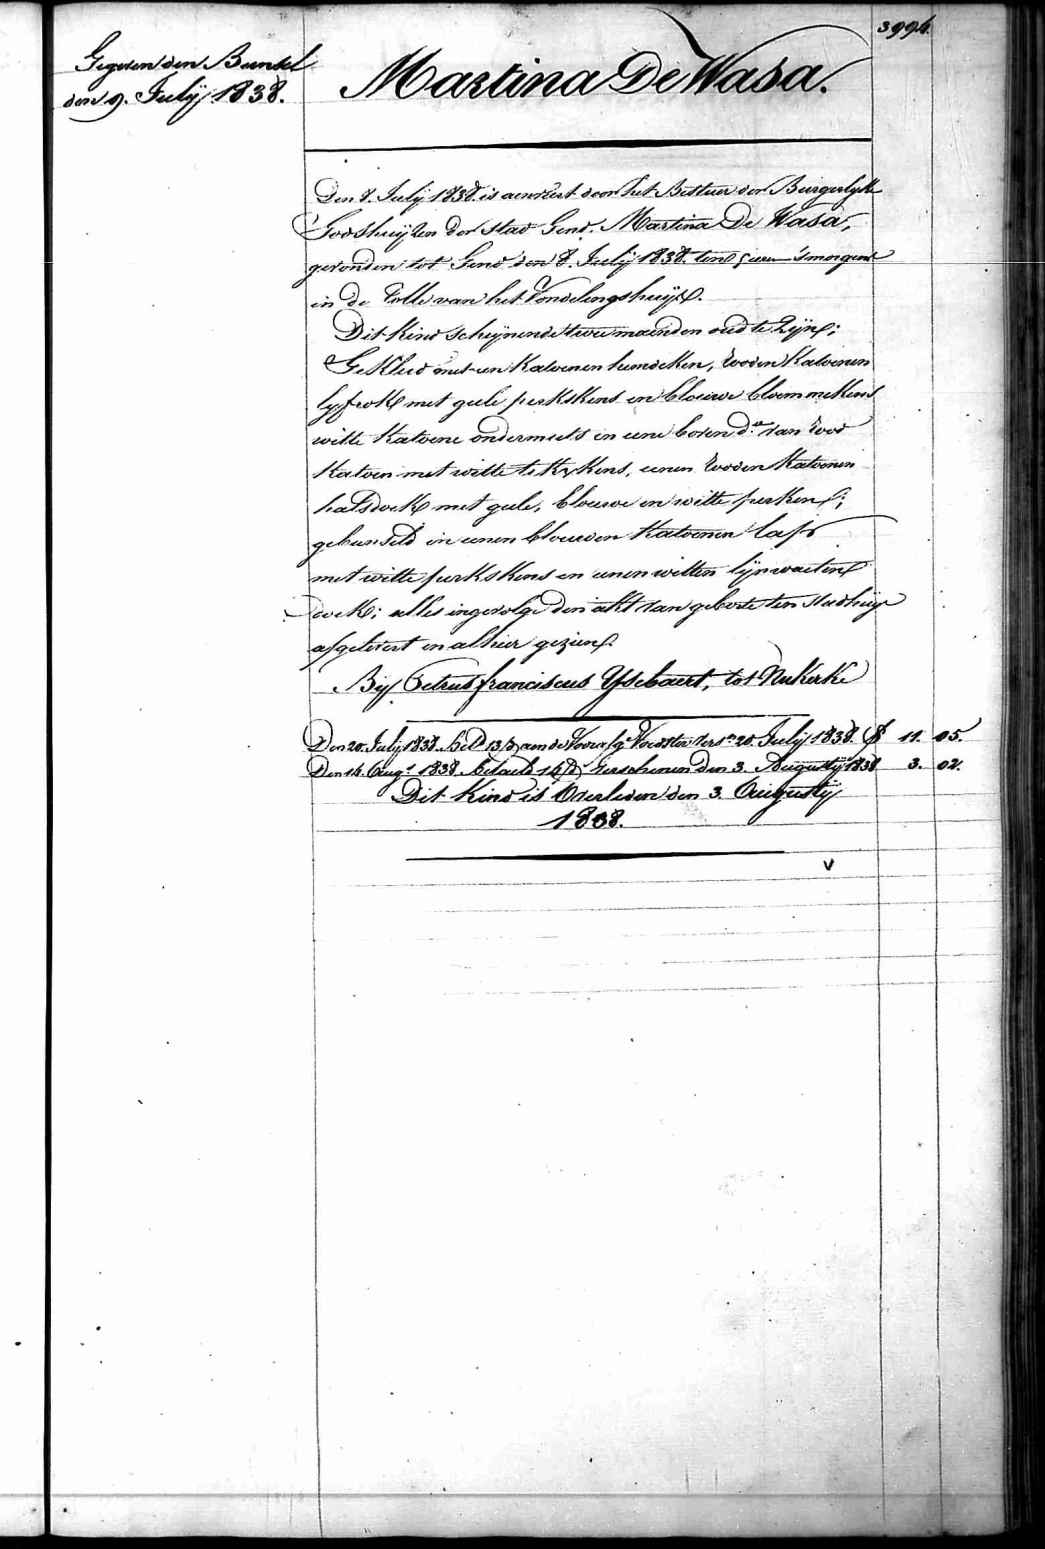 3994.
Gegeven den Bundel
den 9. Julÿ 1838.
Martina De Wasa.
Den 8. Julij 1838. is aenveert door het Bestuer der Burgerlyke
Godshuijzen der stad Gend. Martina De Wasa,
gevonden tot Gend den 8. Julij 1838. ten 5 uren 's morgens
in de Rolle van het Vondelingshuijs.
Dit kind schijnende twee maenden oud te zijn;
Gekleed met een katoenen hemdeken, rooden katoenen
lyfrok met geele perkskens en blouwe bloemmekens
witte katoene ondermuts en eene boven d.e van rood
katoen met witte tekskens, eenen rooden katoenen
halsdoek met geele, blouwe en witte perken;
gebunseld in eenen blouwen katoenen las
met witte perkskens en eenen witten lijnwaeten
doek; alles ingevolge den akt van geboorte ten stadhuijse
afgelevert en alhier gezien.
Bij Petrus franciscus Ysebaert, tot Nukerke
Den 20. Julij 1838. Bet.d 13/ aen de Voorz. Voedster vers.n 20. Julij 1838. 11. 05.
Den 14. Aug.t 1838. betaeld 14/ Verschenen den 3. Augustij 1838 3. 02.
Dit Kind is Overleden den 3. Augustij
1838.
v